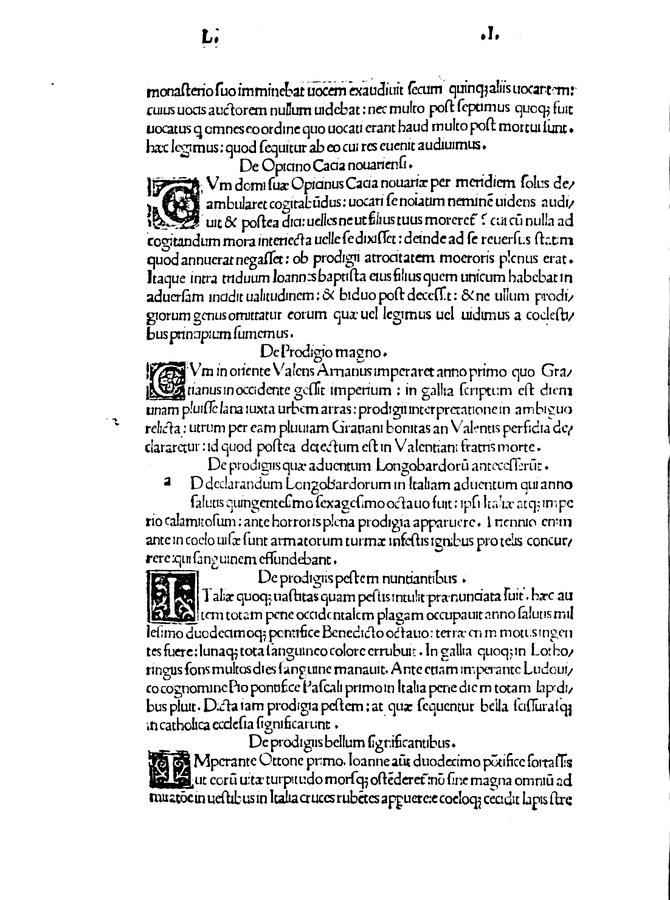 L. .I.
monasterio suo imminebat uocem exaudiuit secum quinqꝫ aliis uocartem:
cuius uocis auctorem nullum uidebat: nec multo post septimus quoqꝫ fuit
uocatus q omnes eo ordine quo uocati erant haud multo post mortui sunt.
hæc legimus: quod sequitur ab eo cui res euenit audiuimus.
De Opicino Cacia nouariensi.
CVm domi suæ Opicinus Cacia nouariæ per meridiem solus de/
ambularet cogitabūdus: uocari se noiatim neminē uidens audi/
uit & postea dici: uelles ne ut filius tuus morereť? cui cū nulla ad
cogitandum mora interiecta uelle se dixisset: deinde ad se reuersus statim
quod annuerat negasset: ob prodigii atrocitatem moeroris plenus erat.
Itaque intra triduum Ioannes baptista eius filius quem unicum habebat in
aduersam incidit ualitudinem: & biduo post decessit: & ne ullum prodi/
giorum genus omittatur eorum quæ uel legimus uel uidimus a coelesti/
bus principium sumemus.
De Prodigio magno.
CVm in oriente Valens Arrianus imperaret anno primo quo Gra/
tianus in occidente gessit imperium: in gallia scriptum est diem
unam pluisse lana iuxta urbem arras: prodigii interpretatione in ambiguo
relicta: utrum per eam pluuiam Gratiani bonitas an Valentis perfidia de/
clararetur: id quod postea detectum est in Valentiani fratris morte.
De prodigiis quæ aduentum Longobardorū antecesserūt.
a D declarandum Longobardorum in Italiam aduentum qui anno
salutis quingentesimo sexagesimo octauo fuit: ipsi Italiæ atqꝫ impe
rio calamitosum: ante horroris plena prodigia apparuere. Triennio enim
ante in coelo uisæ sunt armatorum turmæ infestis ignibus pro telis concur/
rere: qui sanguinem effundebant.
De prodigiis pestem nuntiantibus.
ITaliæ quoqꝫ uastitas quam pestis intulit prænunciata fuit. hæc au
tem totam pene occidentalem plagam occupauit anno salutis mil
lesimo duodecimoqꝫ pontifice Benedicto octauo: terræ enim motus ingen
tes fuere: lunaqꝫ tota sanguineo colore errubuit. In gallia quoqꝫ in Lotho/
ringus fons multos dies sanguine manauit. Ante etiam imperante Ludoui/
co cognomine Pio pontifice Pascali primo in Italia pene diem totam lapidi/
bus pluit. Dicta iam prodigia pestem: at quæ sequentur bella scissurasqꝫ
in catholica ecclesia significarunt.
De prodigiis bellum significantibus.
IMperante Ottone primo. Ioanne aūt duodecimo pōtifice fortassis
ut eorū uitæ turpitudo morsqꝫ ostēdereť: nō sine magna omniū ad
miratōe in uestibus in Italia cruces rubētes appuere: e coeloqꝫ cecidit lapis stre